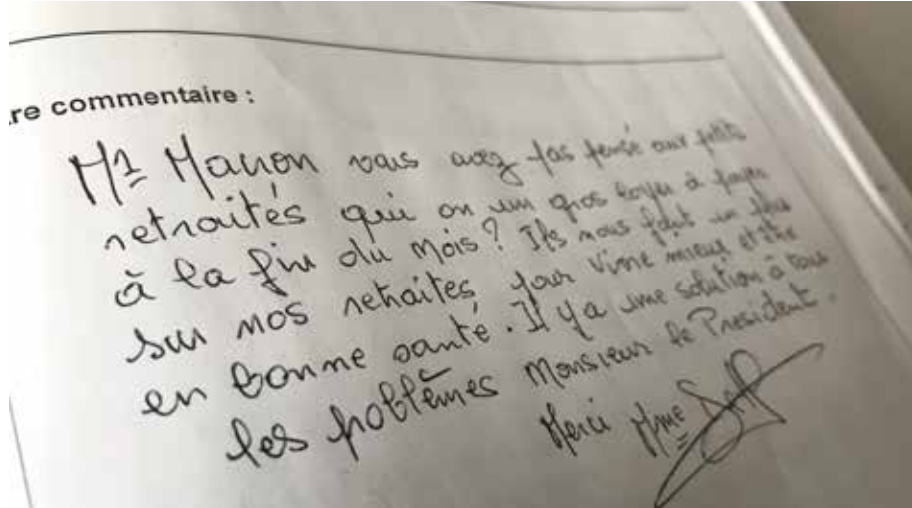 re commentaire :
Mr Macron vous avez pas pensé aux petits
retraités qui on un gros loyer à payer
à la fin du mois? Ils nous faut un plus
sur nos retraites, pour vivre mieux et être
en bonne santé. Il y a une solution à tous
les problèmes Monsieur le Président.
Merci Mme